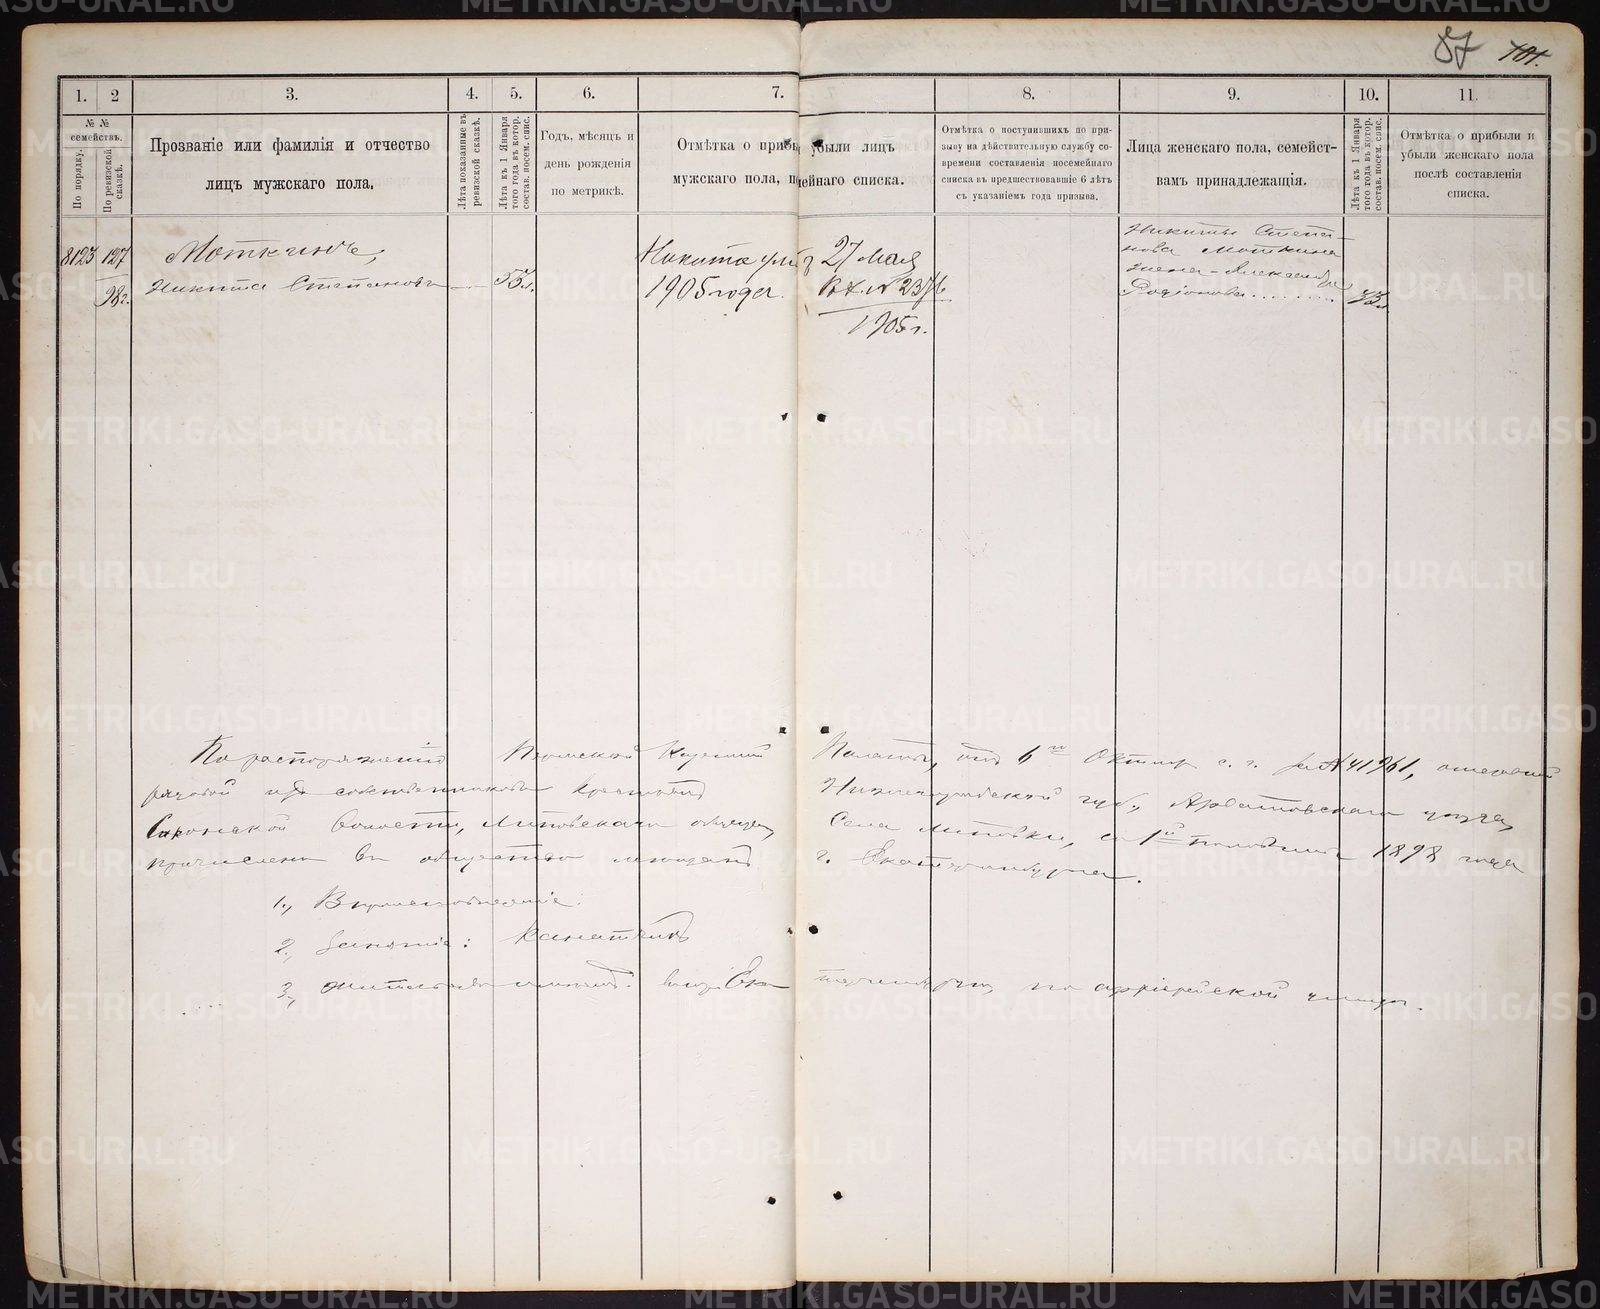 87 101.
1. 2 3. 4. 5. 6. 7. 7. 8. 9. 10. 11.
№ № семействъ.
По порядку.
По ревизской сказкѣ.
Прозваніе или фамилія и отчество
лицъ мужскаго пола.
Лѣта показанные въ
ревизской сказкѣ.
Лѣта къ 1 Января
того года въ котор.
состав. посем. спис.
Годъ, мѣсяцъ и
день рожденія
по метрикѣ.
Отмѣтка о прибы убыли лицъ
мужскаго пола, по мейнаго списка.
Отмѣтка о поступившихъ по при-
зыву на дѣйствительную службу со-
времени составленія посемейнаго
списка въ предшествовавшіе 6 лѣтъ
съ указаніемъ года призыва.
Лица женскаго пола, семейст-
вамъ принадлежащія.
Лѣта къ 1 Января
того года въ котор.
состав. посем. спис.
Отмѣтка о прибыли и
убыли женскаго пола
послѣ составленія
списка.
8123 127
98 г.
Моткинъ,
Никита Степановъ 53 л.
Никита 27 Мая
1905 года.
1905 г.
Никиты Степа-
нова Моткина
жена - Александра
Родіонова
По распоряженію Пермской Казенной Палаты, отъ 6го Октяб с. г. за № 41961,
рядовой изъ собственниковъ крестьянъ Нижегородской губ., Ардатовскаго уезда,
волости, Липовскаго общества, Села Липовки, со 1й половины 1898 года
причисленъ въ общество мещанъ г. Екатеринбурга.
1., Вероисповеданіе:
2., Занятіе: Канатчикъ
3., Жительство въ гор. Екатеринбурге, по Архіерейской улице.
METRIKI.GASO-URAL.RU